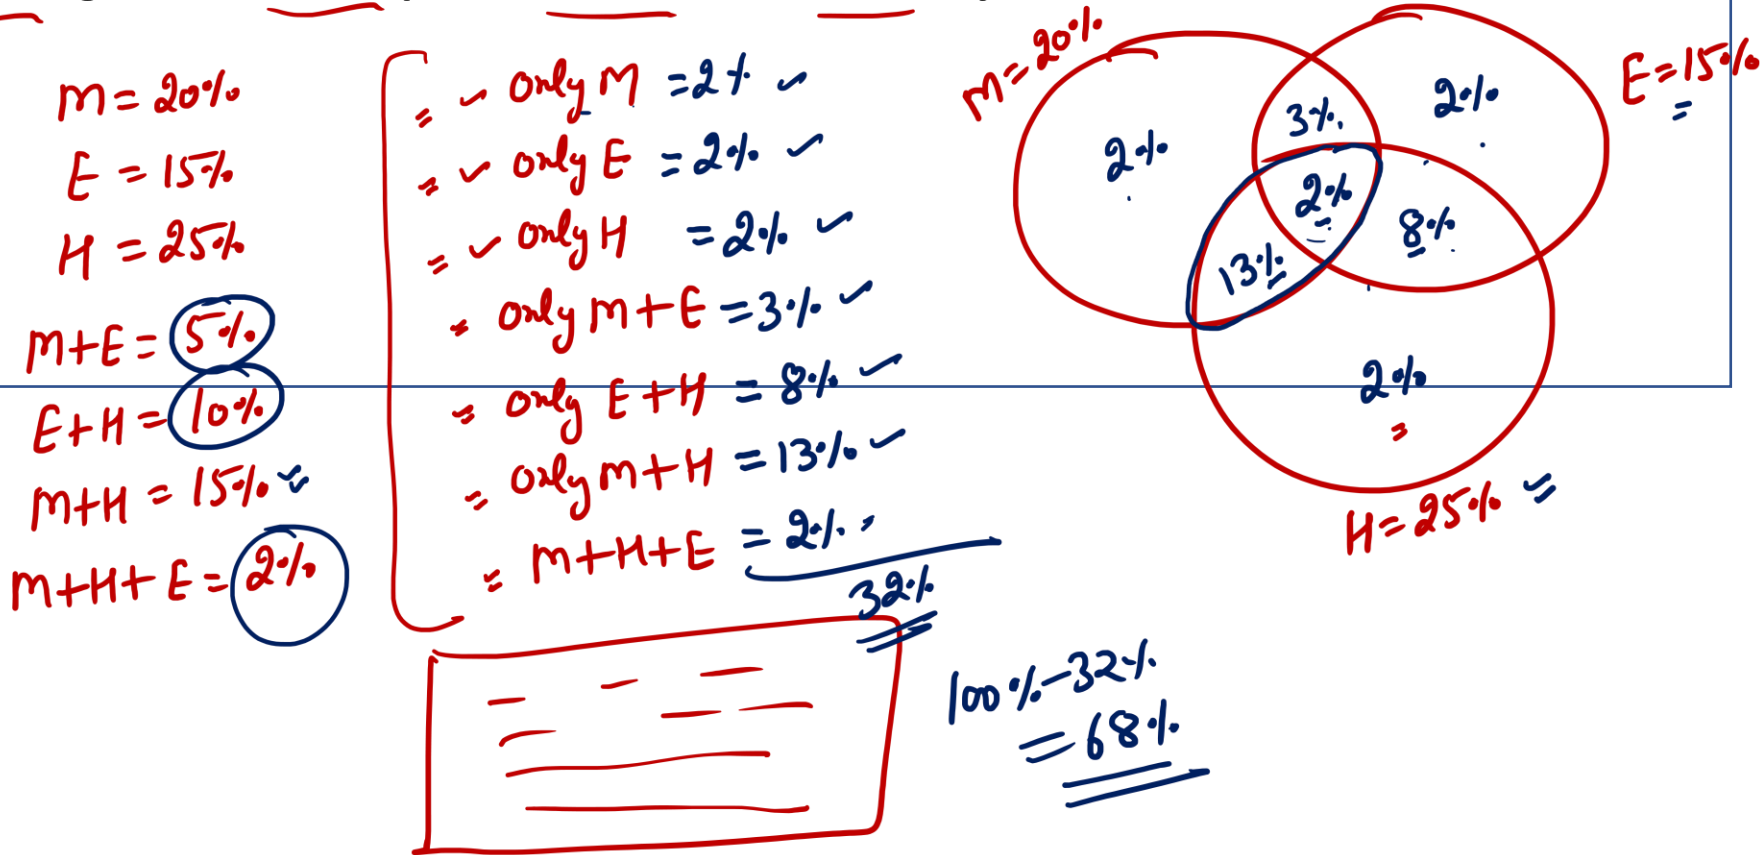 M = 20%
E = 15%
H = 25%
M+E = 5%
E+H = 10%
M+H = 15%
M+H+E = 2%
= ✓ only M = 2% ✓
= ✓ only E = 2% ✓
= ✓ only H = 2% ✓
= only M+E = 3% ✓
= only E+H = 8% ✓
= only M+H = 13% ✓
= M+H+E = 2%
32%
100% - 32%
= 68%
M = 20%
E = 15%
2%
3%
2%
2%
8%
13%
2%
H = 25%